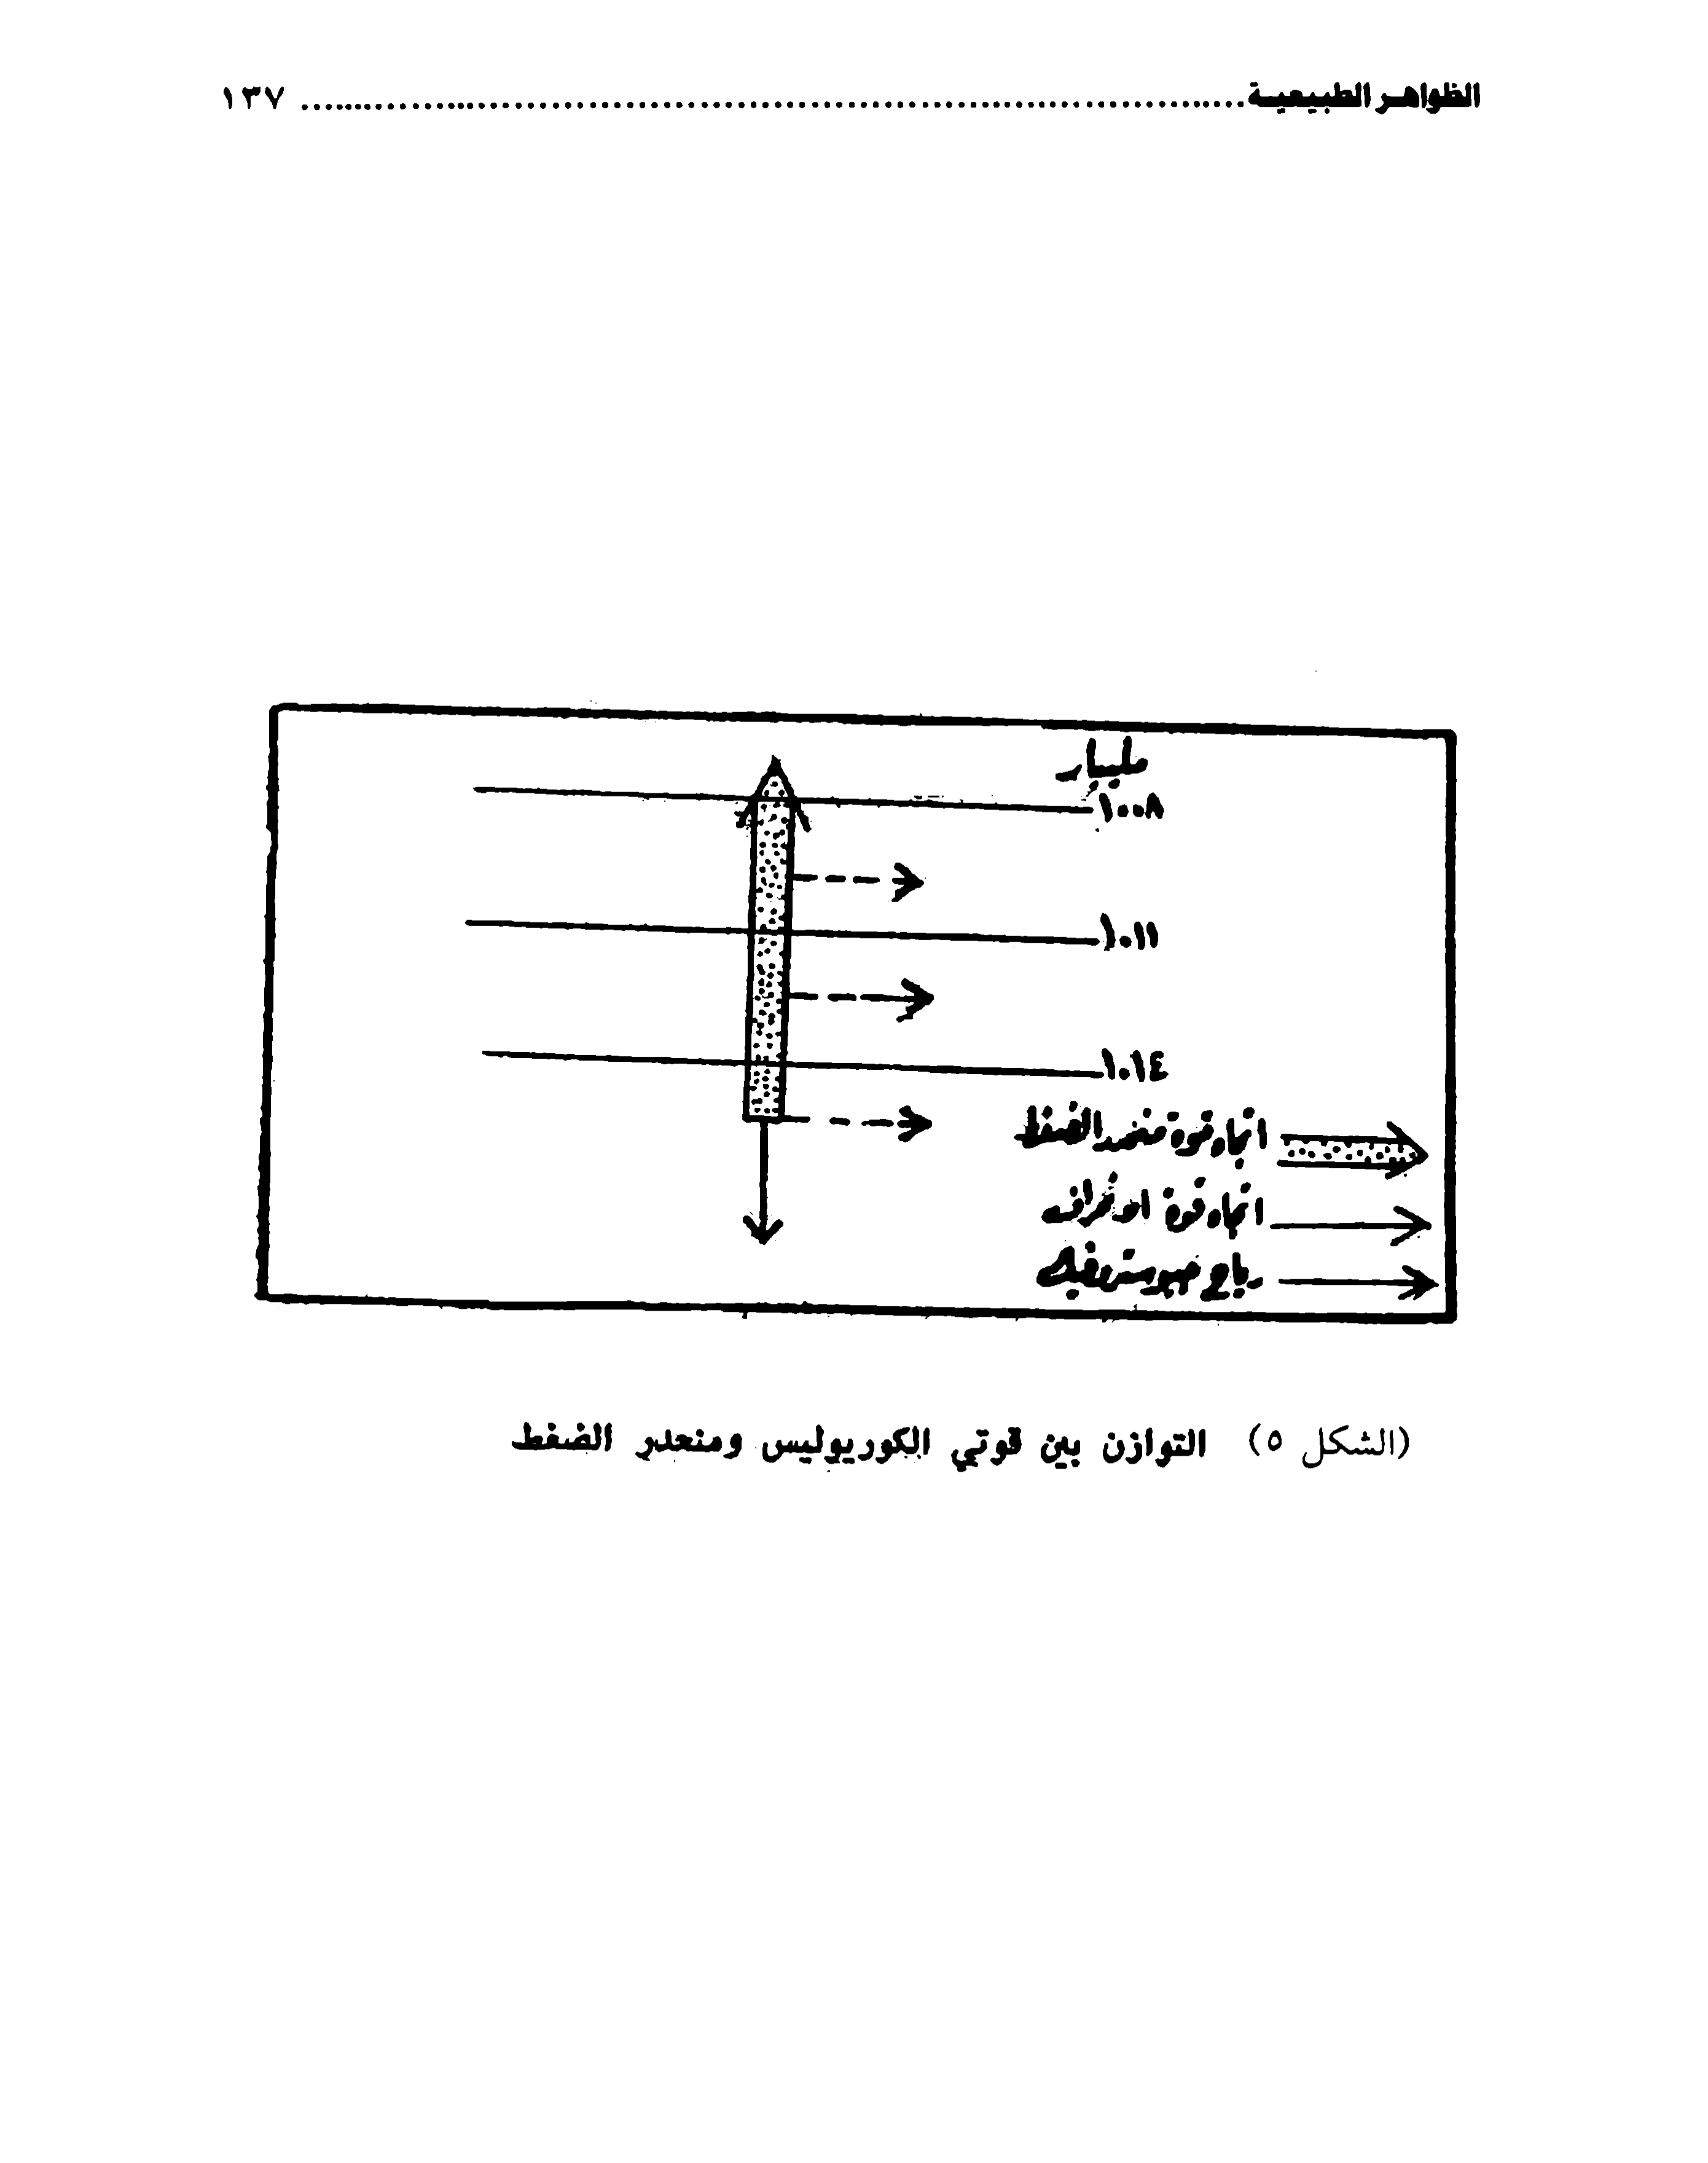 الظواهر الطبيعية ........................................ ١٣٧
مليبار
١٠٠٨
١٠١١
١٠١٤
اتجاه قوة منحدر الضغط
اتجاه قوة الانحراف
رياح جيوستروفية
(الشكل ٥) التوازن بين قوتي الكوريوليس ومنحدر الضغط